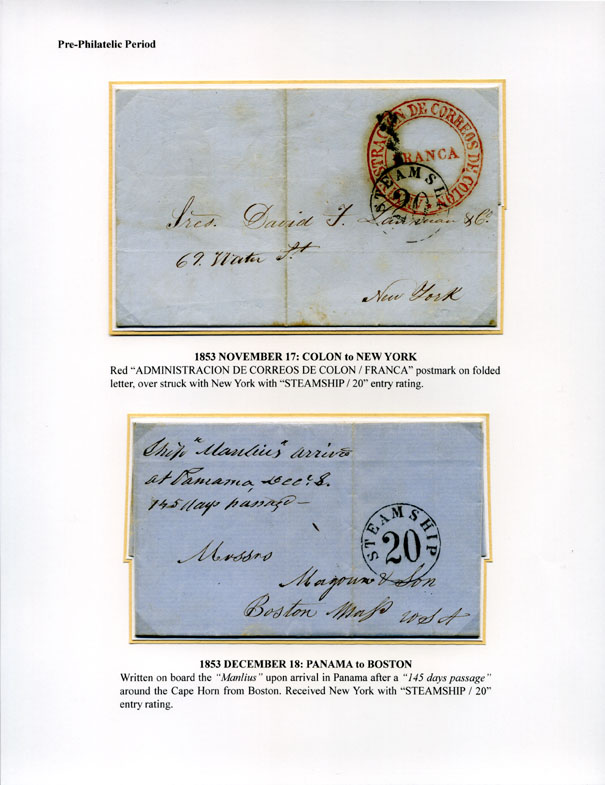 Pre-Philatelic Period
ADMINISTRACION DE CORREOS DE COLON
FRANCA
STEAMSHIP
20
Sres. David J. & Co.
69. Water St
New York
1853 NOVEMBER 17: COLON to NEW YORK
Red “ADMINISTRACION DE CORREOS DE COLON / FRANCA” postmark on folded
letter, over struck with New York with “STEAMSHIP / 20” entry rating.
Ship "Manlius" arrived
at Panama Decr. 8.
145 days passage –
STEAMSHIP
20
Messrs
Magoun & Son
Boston Mass U S A
1853 DECEMBER 18: PANAMA to BOSTON
Written on board the “Manlius” upon arrival in Panama after a “145 days passage”
around the Cape Horn from Boston. Received New York with “STEAMSHIP / 20”
entry rating.